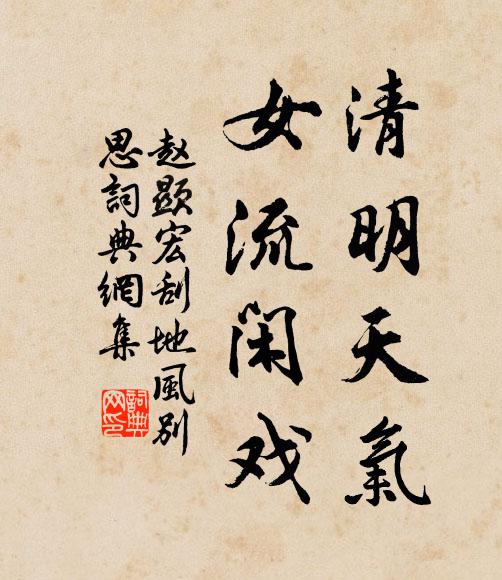 清明天氣
女流闲戏
赵显宏刮地風别
思詞典網集
詞典
网印